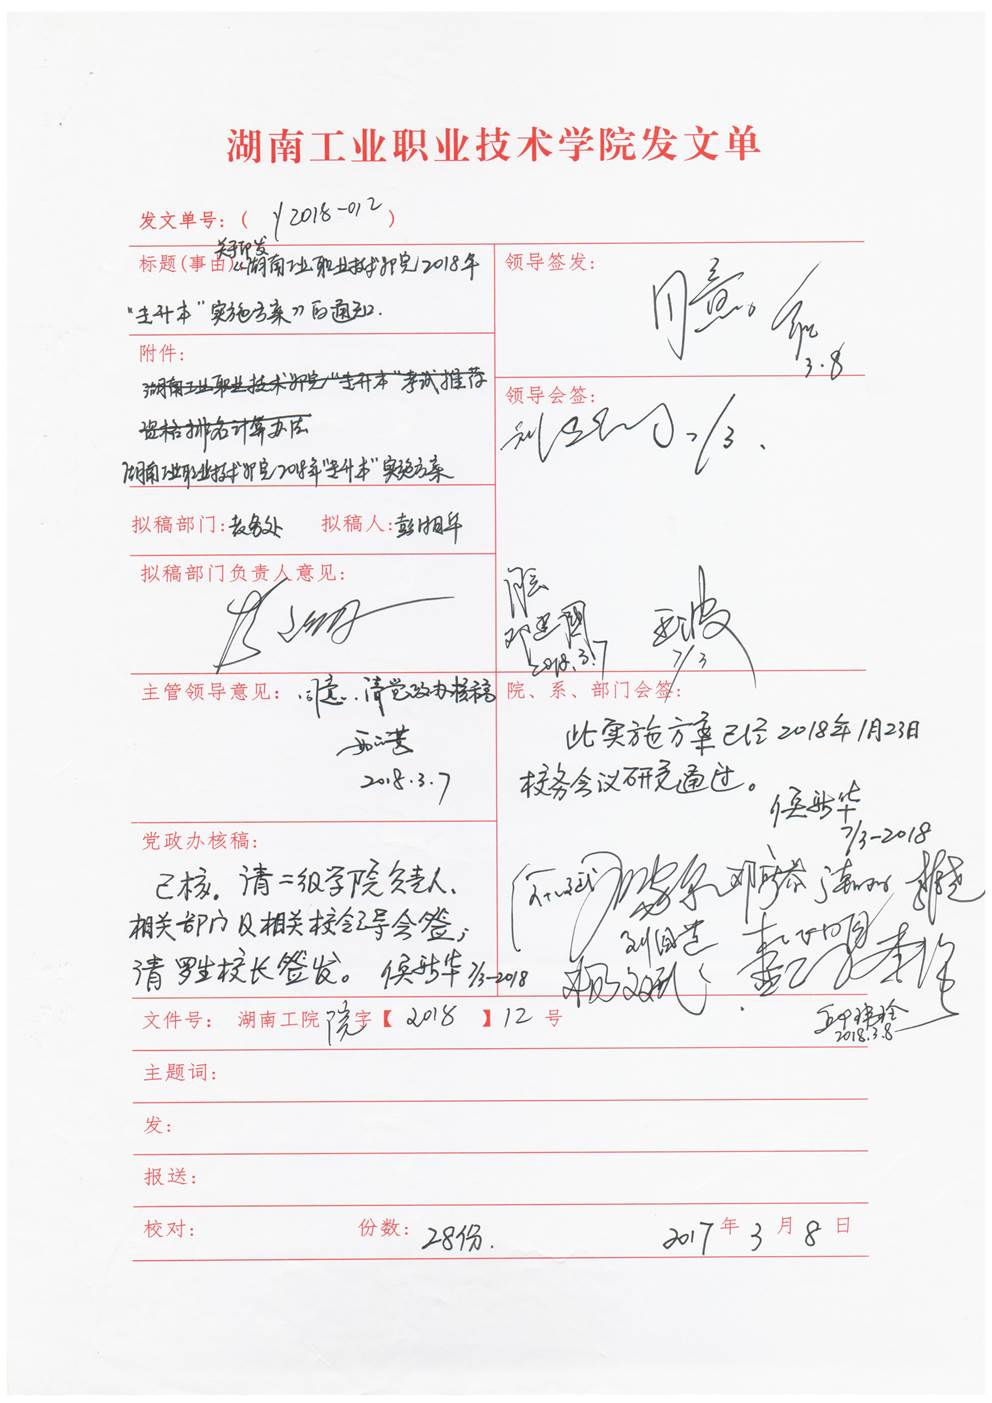 湖南工业职业技术学院发文单
发文单号：( y2018-012 )
关于印发
标题(事由)《湖南工业职业技术学院2018年
“专升本”实施方案》的通知.
领导签发：
同意。
3.8
附件：
湖南工业职业技术学院“专升本”考试推荐
资格排名计算办法
湖南工业职业技术学院2018年“专升本”实施方案
领导会签：
7/3.
拟稿部门：教务处 拟稿人：彭湘华
拟稿部门负责人意见：
同意
邓建国
2018.3.7
7/3
主管领导意见：同意.请党政办核稿
2018.3.7
院、系、部门会签：
此实施方案已经2018年1月23日
校务会议研究通过。
侯新华
7/3-2018
党政办核稿：
已核。请二级学院负责人、
相关部门及相关校领导会签；
请罗生校长签发。 侯新华 7/3-2018
2018.3.8
文件号： 湖南工院院字【2018】12号
主题词：
发：
报送：
校对： 份数：28份. 2017年3月8日